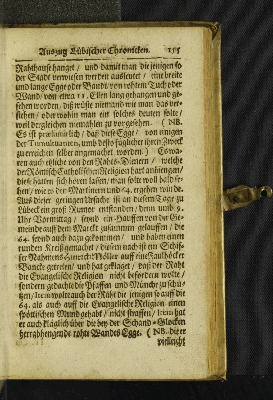 Auszug Lübischer Chronicken. 155
Rahthause hanget / und damit man die jenigen so
der Stadt verwiesen werden ausleutet / eine breite
und lange Egge oder Wandt / von rohtem Tuch oder
Wand / von circa 11. Ellen lang gehangen und ge-
sehen worden / diß wüste niemand wie man das ver-
stehen / oder wohin man ein solches deuten solte /
weil dergleichen niemahlen zu vorgesehen. (NB.
Es ist præsumirlich / daß diese Egge / von einigen
der Tumultuanten, umb desto füglicher ihren Zweck
zu erreichen selber angemachet worden.) Es wa-
ren auch etzliche von den Rahts-Dienern / welche
der Römisch-Catholischen Religion hart anhiengen /
diese hatten sich hören lassen / man solte woll bald se-
hen / wie es der Martinern und 64. ergehen würde.
Aus dieser geringen Ursache ist an diesem Tage zu
Lübeck ein groß Rumor entstanden / denn umb 9.
Uhr Vormittag / seynd ein Hauffen von der Ge-
meinde auff dem Marckt zusammen gelauffen / die
64. seynd auch dazu gekommen / und haben einen
runden Kreiß gemachet / diesem nach ist ein Schif-
fer Nahmens Hinrich Möller auff eine Faulhöcker
Banck getreten / und hat geklaget / daß der Raht
die Evangelische Religion nicht befodern wolte /
sondern gedachte die Pfaffen und Münche zu schü-
tzen / Item wolte auch der Raht die jenigen so auff die
64. als auch auff die Evangelische Religion einen
spöttlichen Mund gehabt / nicht straffen / Item hat
er auch kläglich über die bey der Schand-Glocken
herabhengende rohte Wandes Egge. (NB. dieser
vielleicht